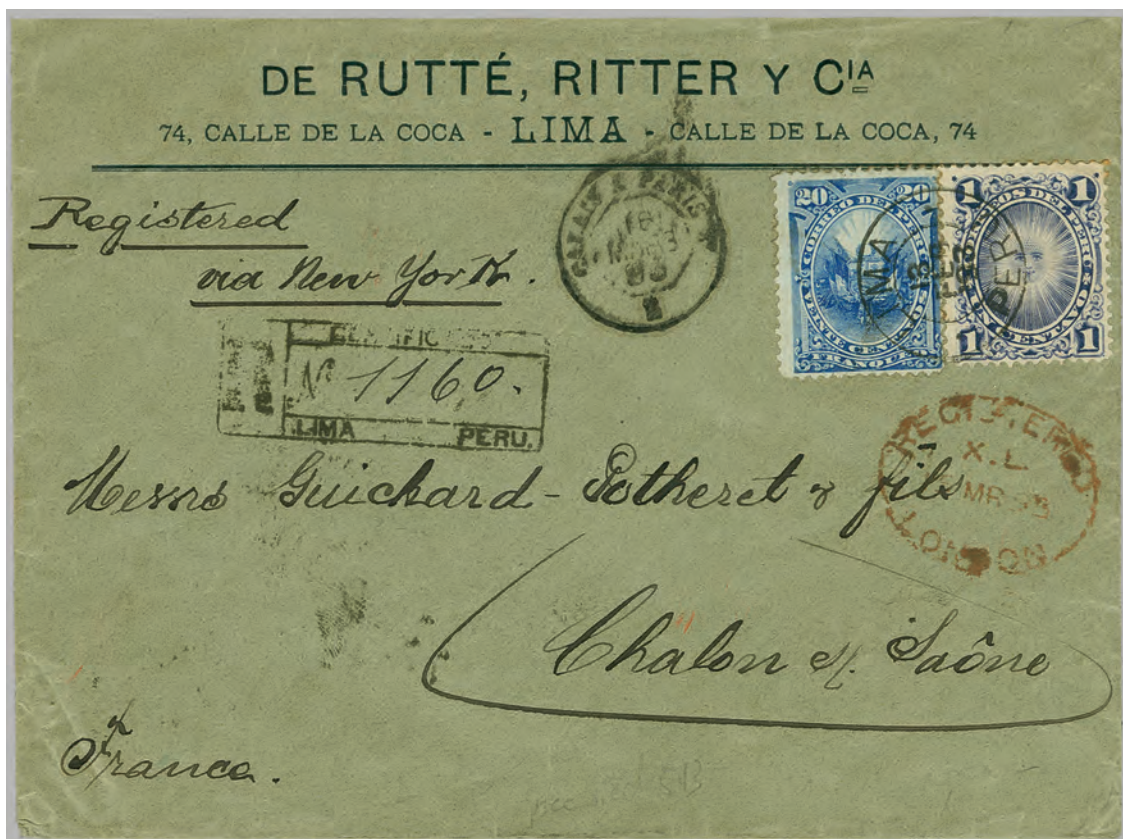 DE RUTTÉ, RITTER Y CIA
74, CALLE DE LA COCA - LIMA - CALLE DE LA COCA, 74
Registered
via New York.
CALAIS A PARIS
20 20
CORREO DEL PERU
VEINTE CENTAVOS
FRANQUEO
1 1
CORREOS DEL PERU
UN CENTAVO
1 1
LIMA
PERU
Nº 1160.
LIMA PERU.
REGISTERED
X.L.
MR
LONDON
Messrs Guichard-Potheret & fils
Chalon s/. Saône
France.